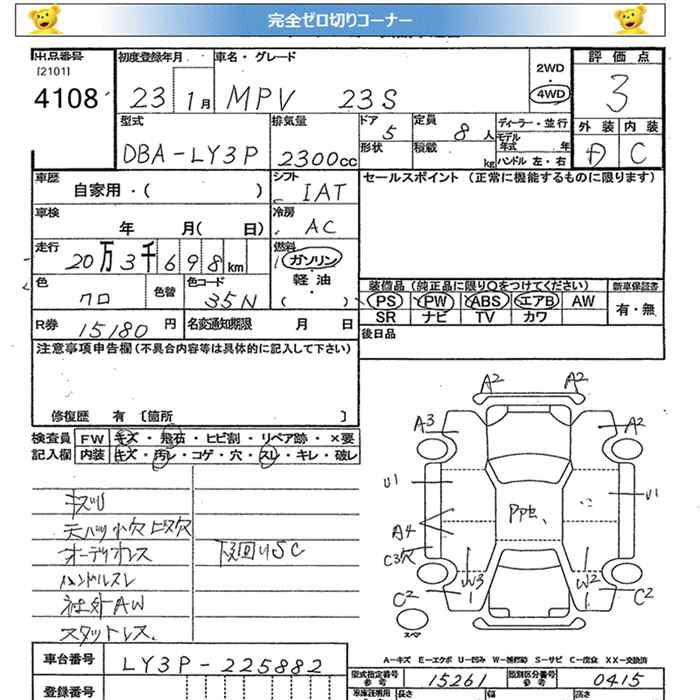 完全ゼロ切りコーナー
出品番号
[2101]
4108
初度登録年月
23 1月
車名・グレード
MPV 23S
2WD
・
4WD
評価点
3
外装 内装
C
型式
DBA-LY3P
排気量
2300cc
ドア
5
定員
8人
形状
積載
kg
ディーラー・並行
モデル年式 年
ハンドル 左・右
車歴
自家用・( )
シフト
IAT
セールスポイント (正常に機能するものに限ります)
車検
年 月( 日)
冷房
AC
走行
20万3千698km
燃料
ガソリン
・
軽油
・
( )
色
クロ
色替
色コード
35N
装備品(純正品に限り○をつけてください)
PS PW ABS エアB AW
SR ナビ TV カワ
新車保証書
有・無
R券 15180円
名変通知期限 月 日
後日品
注意事項申告欄(不具合内容等は具体的に記入して下さい)
修復歴 有 [箇所 ]
検査員記入欄
FW キズ・飛石・ヒビ割・リペア跡・×要
内装 キズ・汚レ・コゲ・穴・スレ・キレ・破レ
オーディオレス
ハンドルスレ
社外AW
スタットレス
下回りSC
A2 A2
A3 A2
U1 U1
A4
C3穴
W3 W2
C2 C2
スペア
A-キズ E-エクボ U-凹み W-補修跡 S-サビ C-腐食 XX-交換済
車台番号
LY3P-225882
型式指定番号
参考
15261
類別区分番号
参考
0415
登録番号
長さ
幅
高さ